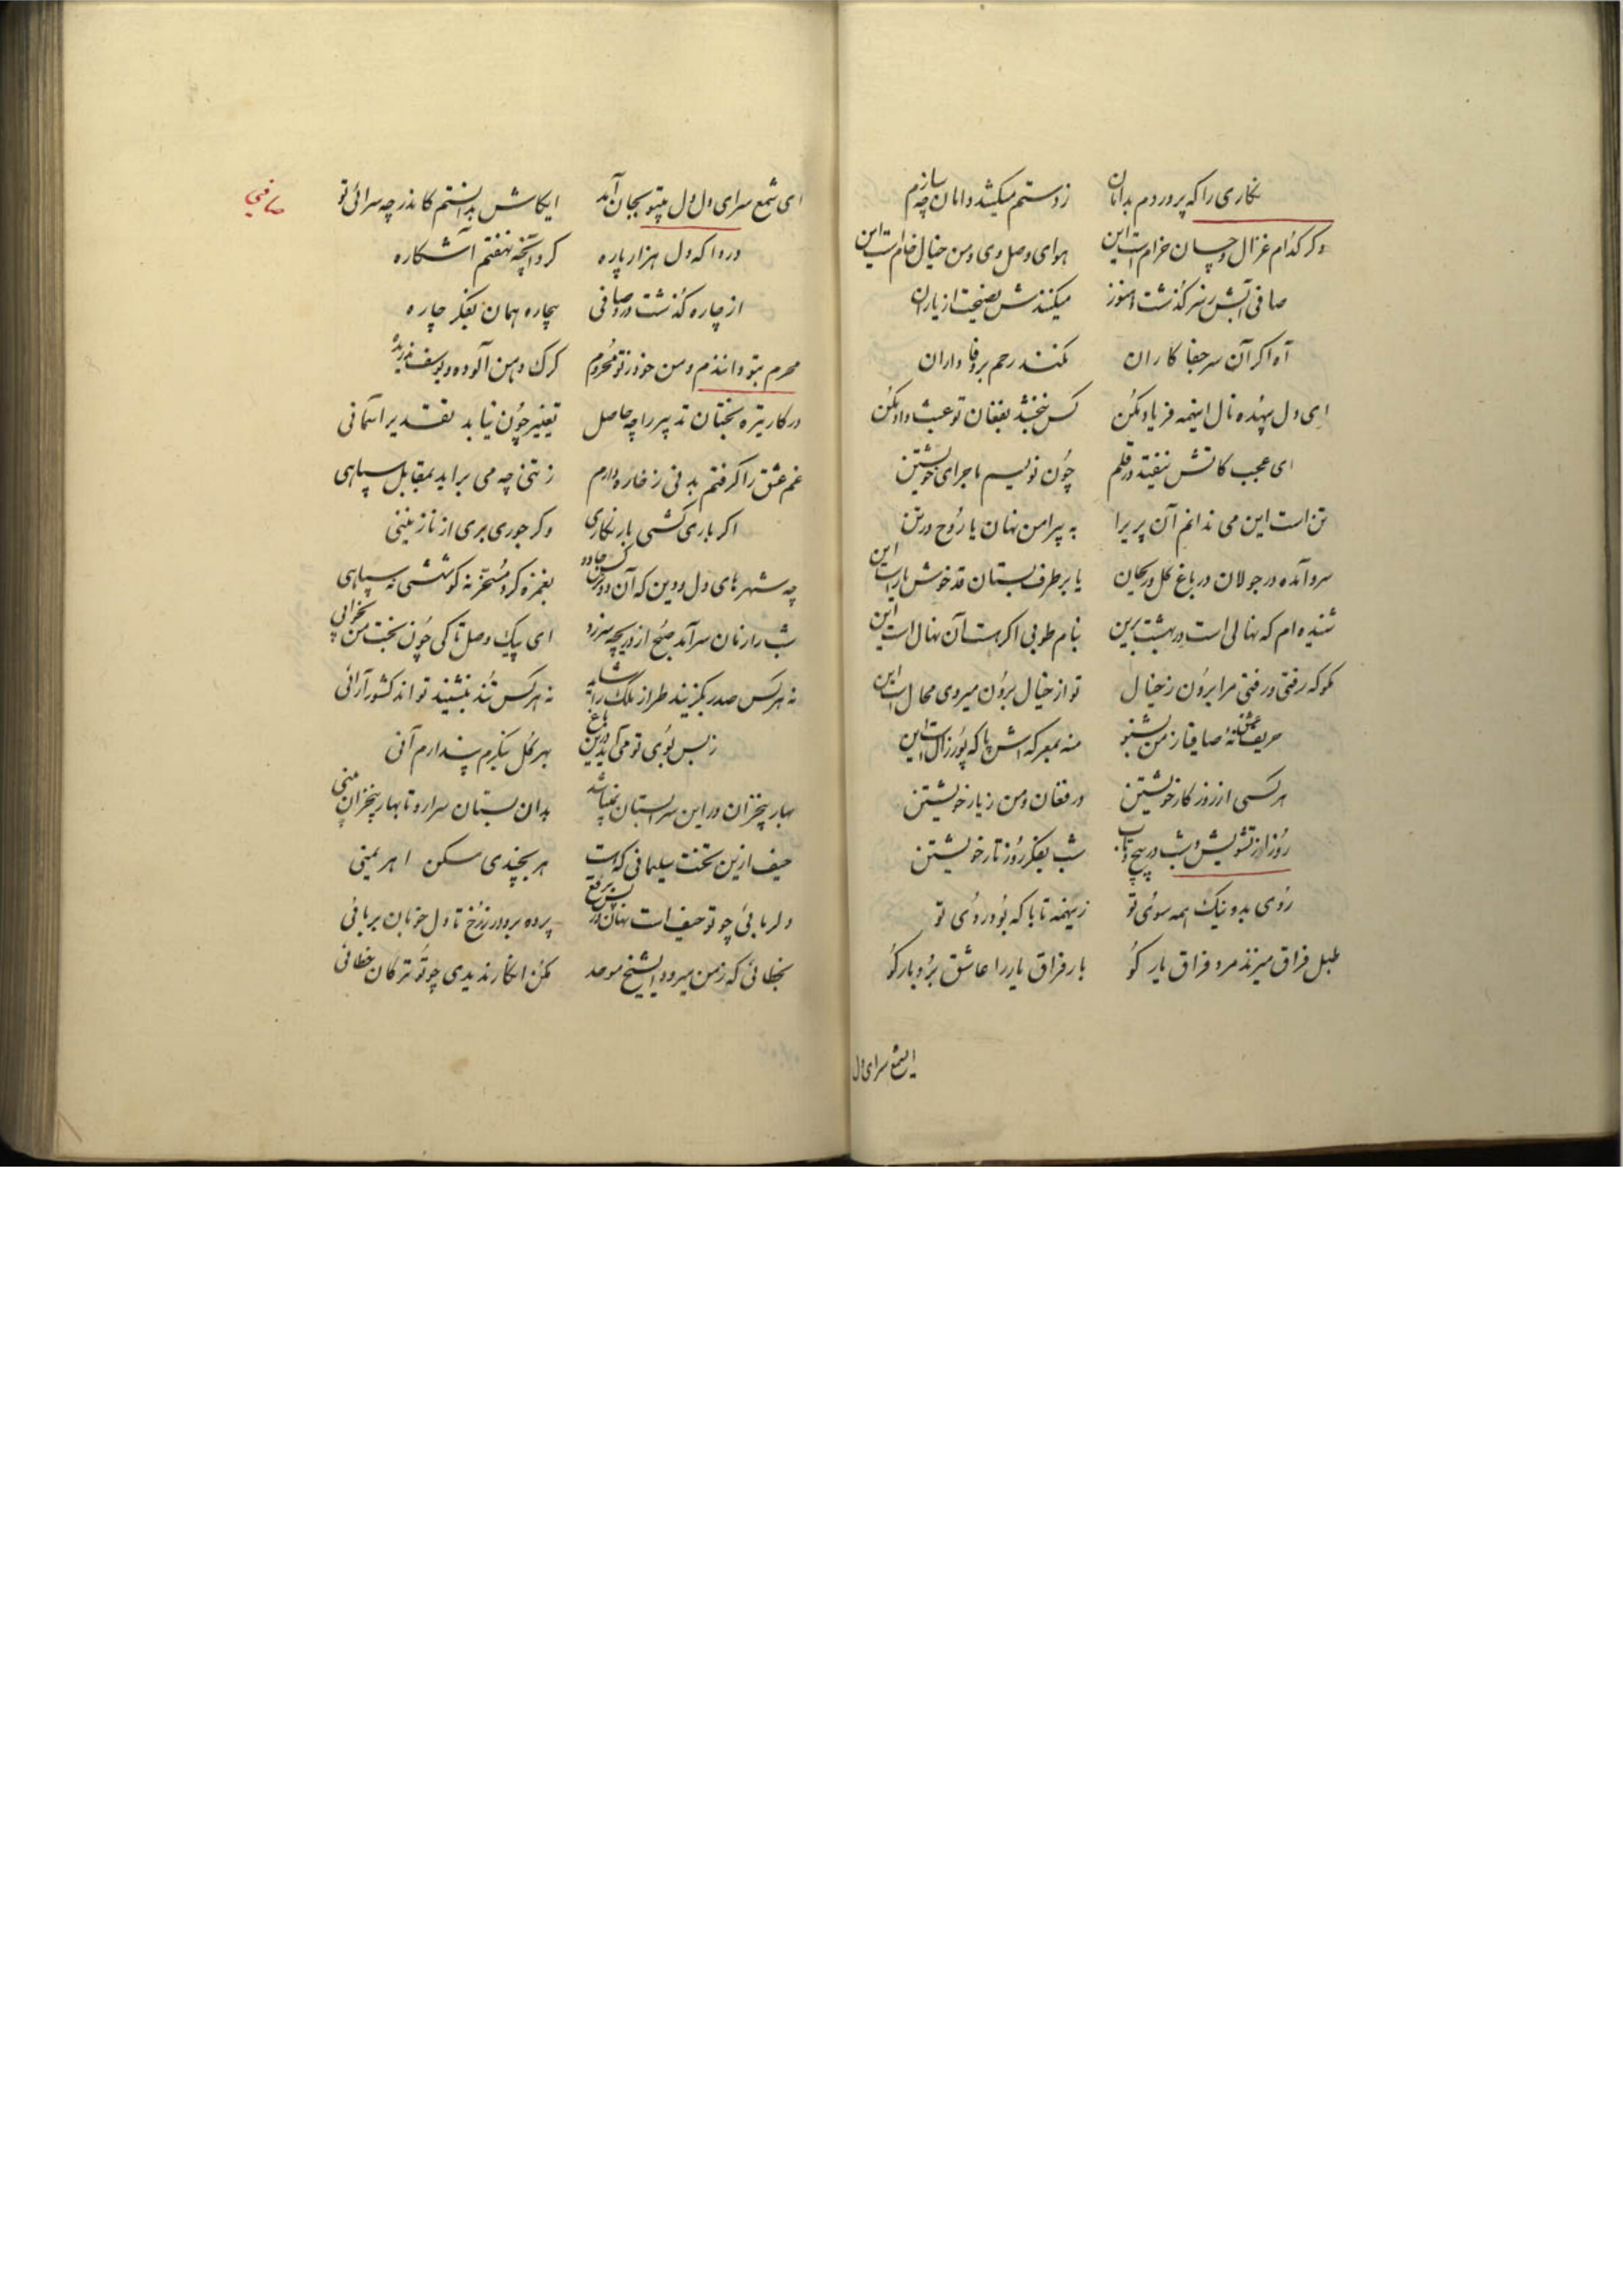 نکاری را که پروردم بدامان زدستم میکشد دامان چه سازم
دکر کدام غزال و چسان خرام است این هوای وصل وی و من خیال خام است این
صافی آبش ز سر کذشت و هنوز میکنندش نصیحت از یاران
آه اکر آن سر جفا کاران نکند رحم بر وفا داران
ای دل بیهده نال اینهمه فریاد مکن کس نبخشد بفغان تو عبث داد مکن
ای عجب کاتش نیفتد در قلم چون نویسم ماجرای خویشتن
تن است این می ندانم آن پری را به پیراهن نهان یا روح در تن
سرو آمده در جولان در باغ کل و ریحان یا بر طرف بستان قد خوش یار است این
شنیده ام که نهالی است در بهشت برین بنام طوبی اکر هست آن نهال است این
مکو که رفتی و رفتی مرا برون ز خیال تو از خیال برون میروی محال است این
حریف عشق نهٔ صافیا ز من بشنو منه بمعرکه اش پا که پور زال است این
هر کسی از روز کار خویشتن در فغان و من ز یار خویشتن
روز از تشویش شب در پیچ و تاب شب بفکر روز تار خویشتن
روی بد و نیک همه سوی تو زینهمه تا با که بود روی تو
طبل فراق میزند مرد فراق یار کو بار فراق یار را عاشق برد بار کو
ایشمع سرای دل
ای شمع سرای دل دل بیتو بجان آمد ایکاش بدانستم کاندر چه سرائی تو
صافی
دردا که دل هزار پاره کرد آنچه نهفتم آشکاره
از چاره کذشت درد صافی بیچاره همان بفکر چاره
محرم بتو دانندم و من خود ز تو محروم کرک دهن آلوده و یوسف ندریده
در کار تیره بختان تدبیر را چه حاصل تغییر چون نیابد تقدیر آسمانی
غم عشق را کرفتم بدنی ز خاره دارم ز تنی چه می براید بمقابل سپاهی
اکر باری کشی بار نکاری وکر جوری بری از نازنینی
چه شهر های دل و دین که آن دو نرکس جادو بغمزه کرد مسخر نه کوششی نه سپاهی
شب را زمان سرآمد صبح از دریچه سر زد ای پیک وصل تا کی چون بخت من بخوابی
نه هر کس صدر بکزیند طراز ملک را شاید نه هر کس تند بنشیند تواند کشور آرائی
ز بس بوی تو می آید درین باغ بهر کل بنکرم پندارم آنی
بهار بیخزان در این سرابستان نمیباشد بدان بستان سرا رو تا بهار بیخزان بینی
حیف ازین تخت سلیمانی که هست هر بچندی مسکن اهریمنی
دلربائی چو تو حیف است نهان در پس برقع پرده بردار ز رخ تا دل خوبان بربائی
بخطائی که ز من میرود ایشیخ موحد مکن انکار ندیدی چو تو ترکان خطائی